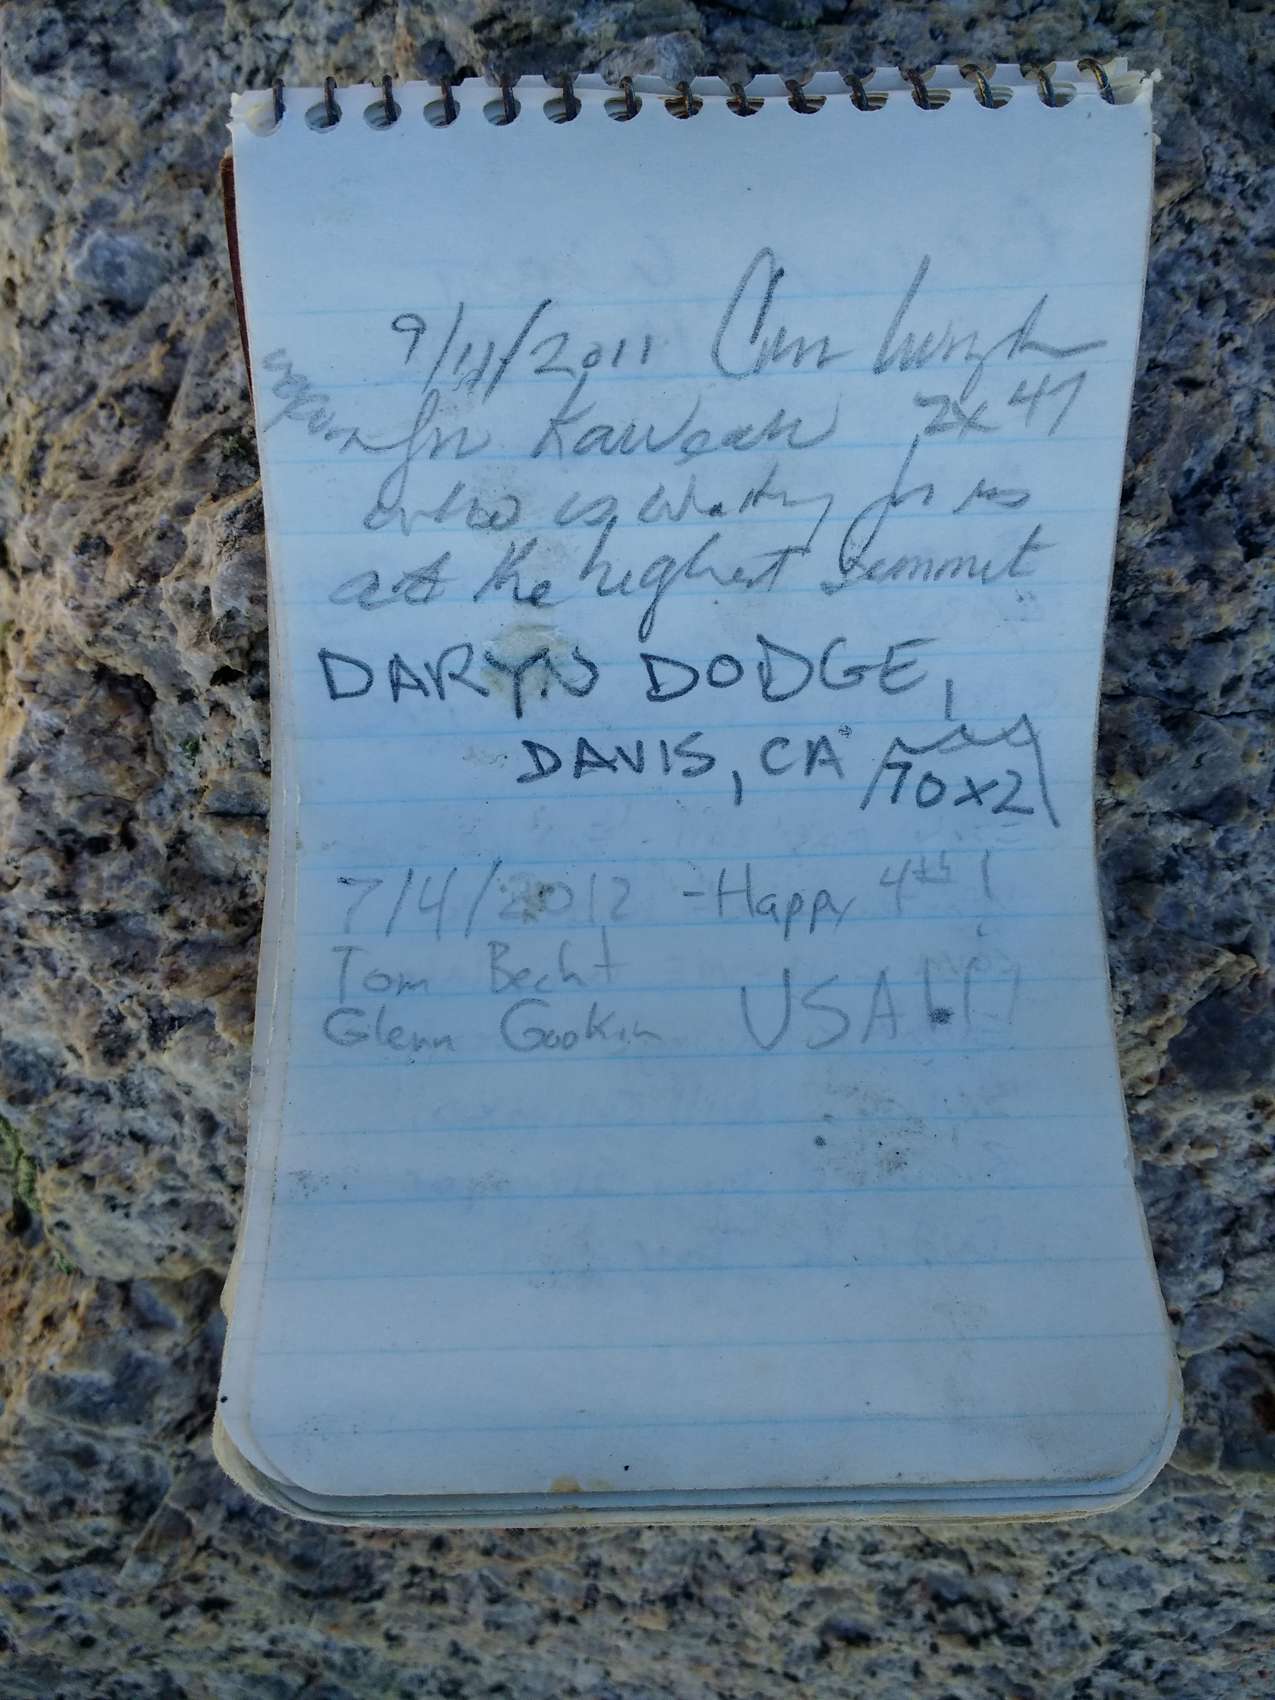 9/11/2011
for Kaweah 2x 47
who is waiting for us
at the highest summit
DARYN DODGE,
DAVIS, CA 70x2
7/4/2012 - Happy 4th!
Tom Becht
Glenn Gookin USA!!!